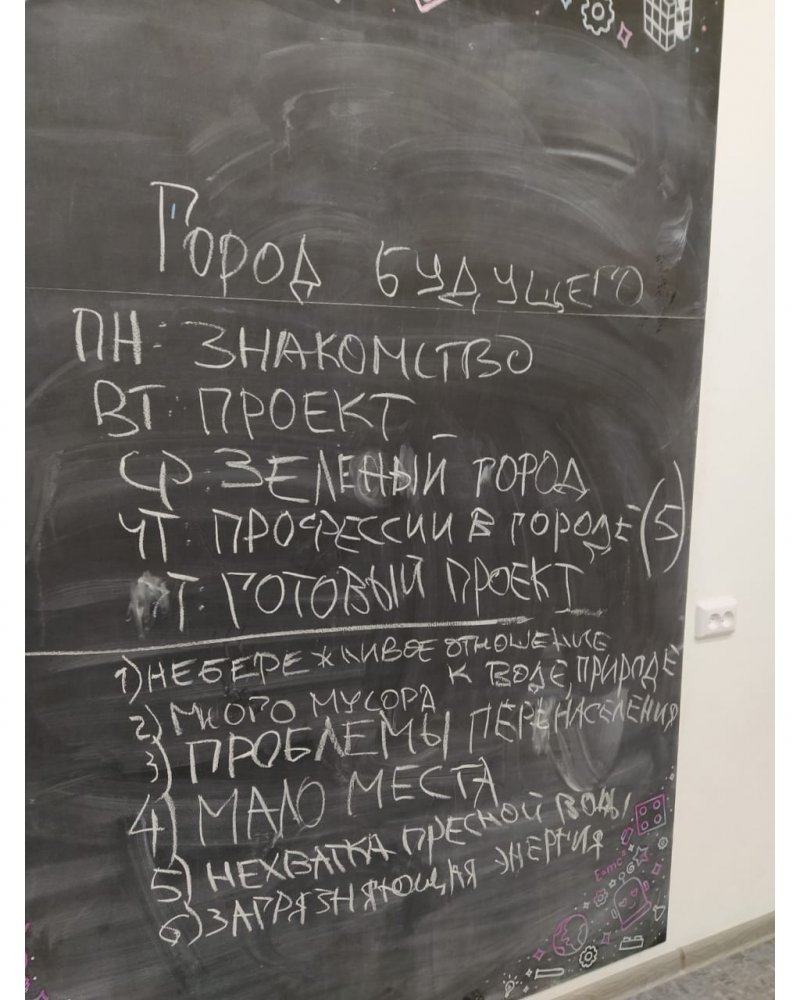 Город будущего
ПН: ЗНАКОМСТВО
ВТ: ПРОЕКТ
СР: ЗЕЛЕНЫЙ ГОРОД
ЧТ: ПРОФЕССИИ В ГОРОДЕ (5)
Т: ГОТОВЫЙ ПРОЕКТ
1) НЕБЕРЕЖЛИВОЕ ОТНОШЕНИЕ
К ВОДЕ, ПРИРОДЕ
2) МНОГО МУСОРА
3) ПРОБЛЕМЫ ПЕРЕНАСЕЛЕНИЯ
4) МАЛО МЕСТА
5) НЕХВАТКА ПРЕСНОЙ ВОДЫ
6) ЗАГРЯЗНЯЮЩАЯ ЭНЕРГИЯ